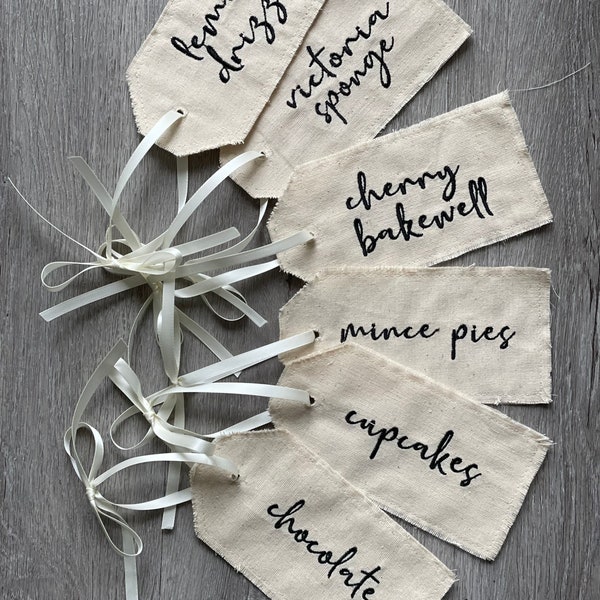 lemon
drizzle
victoria
sponge
cherry
bakewell
mince pies
cupcakes
chocolate